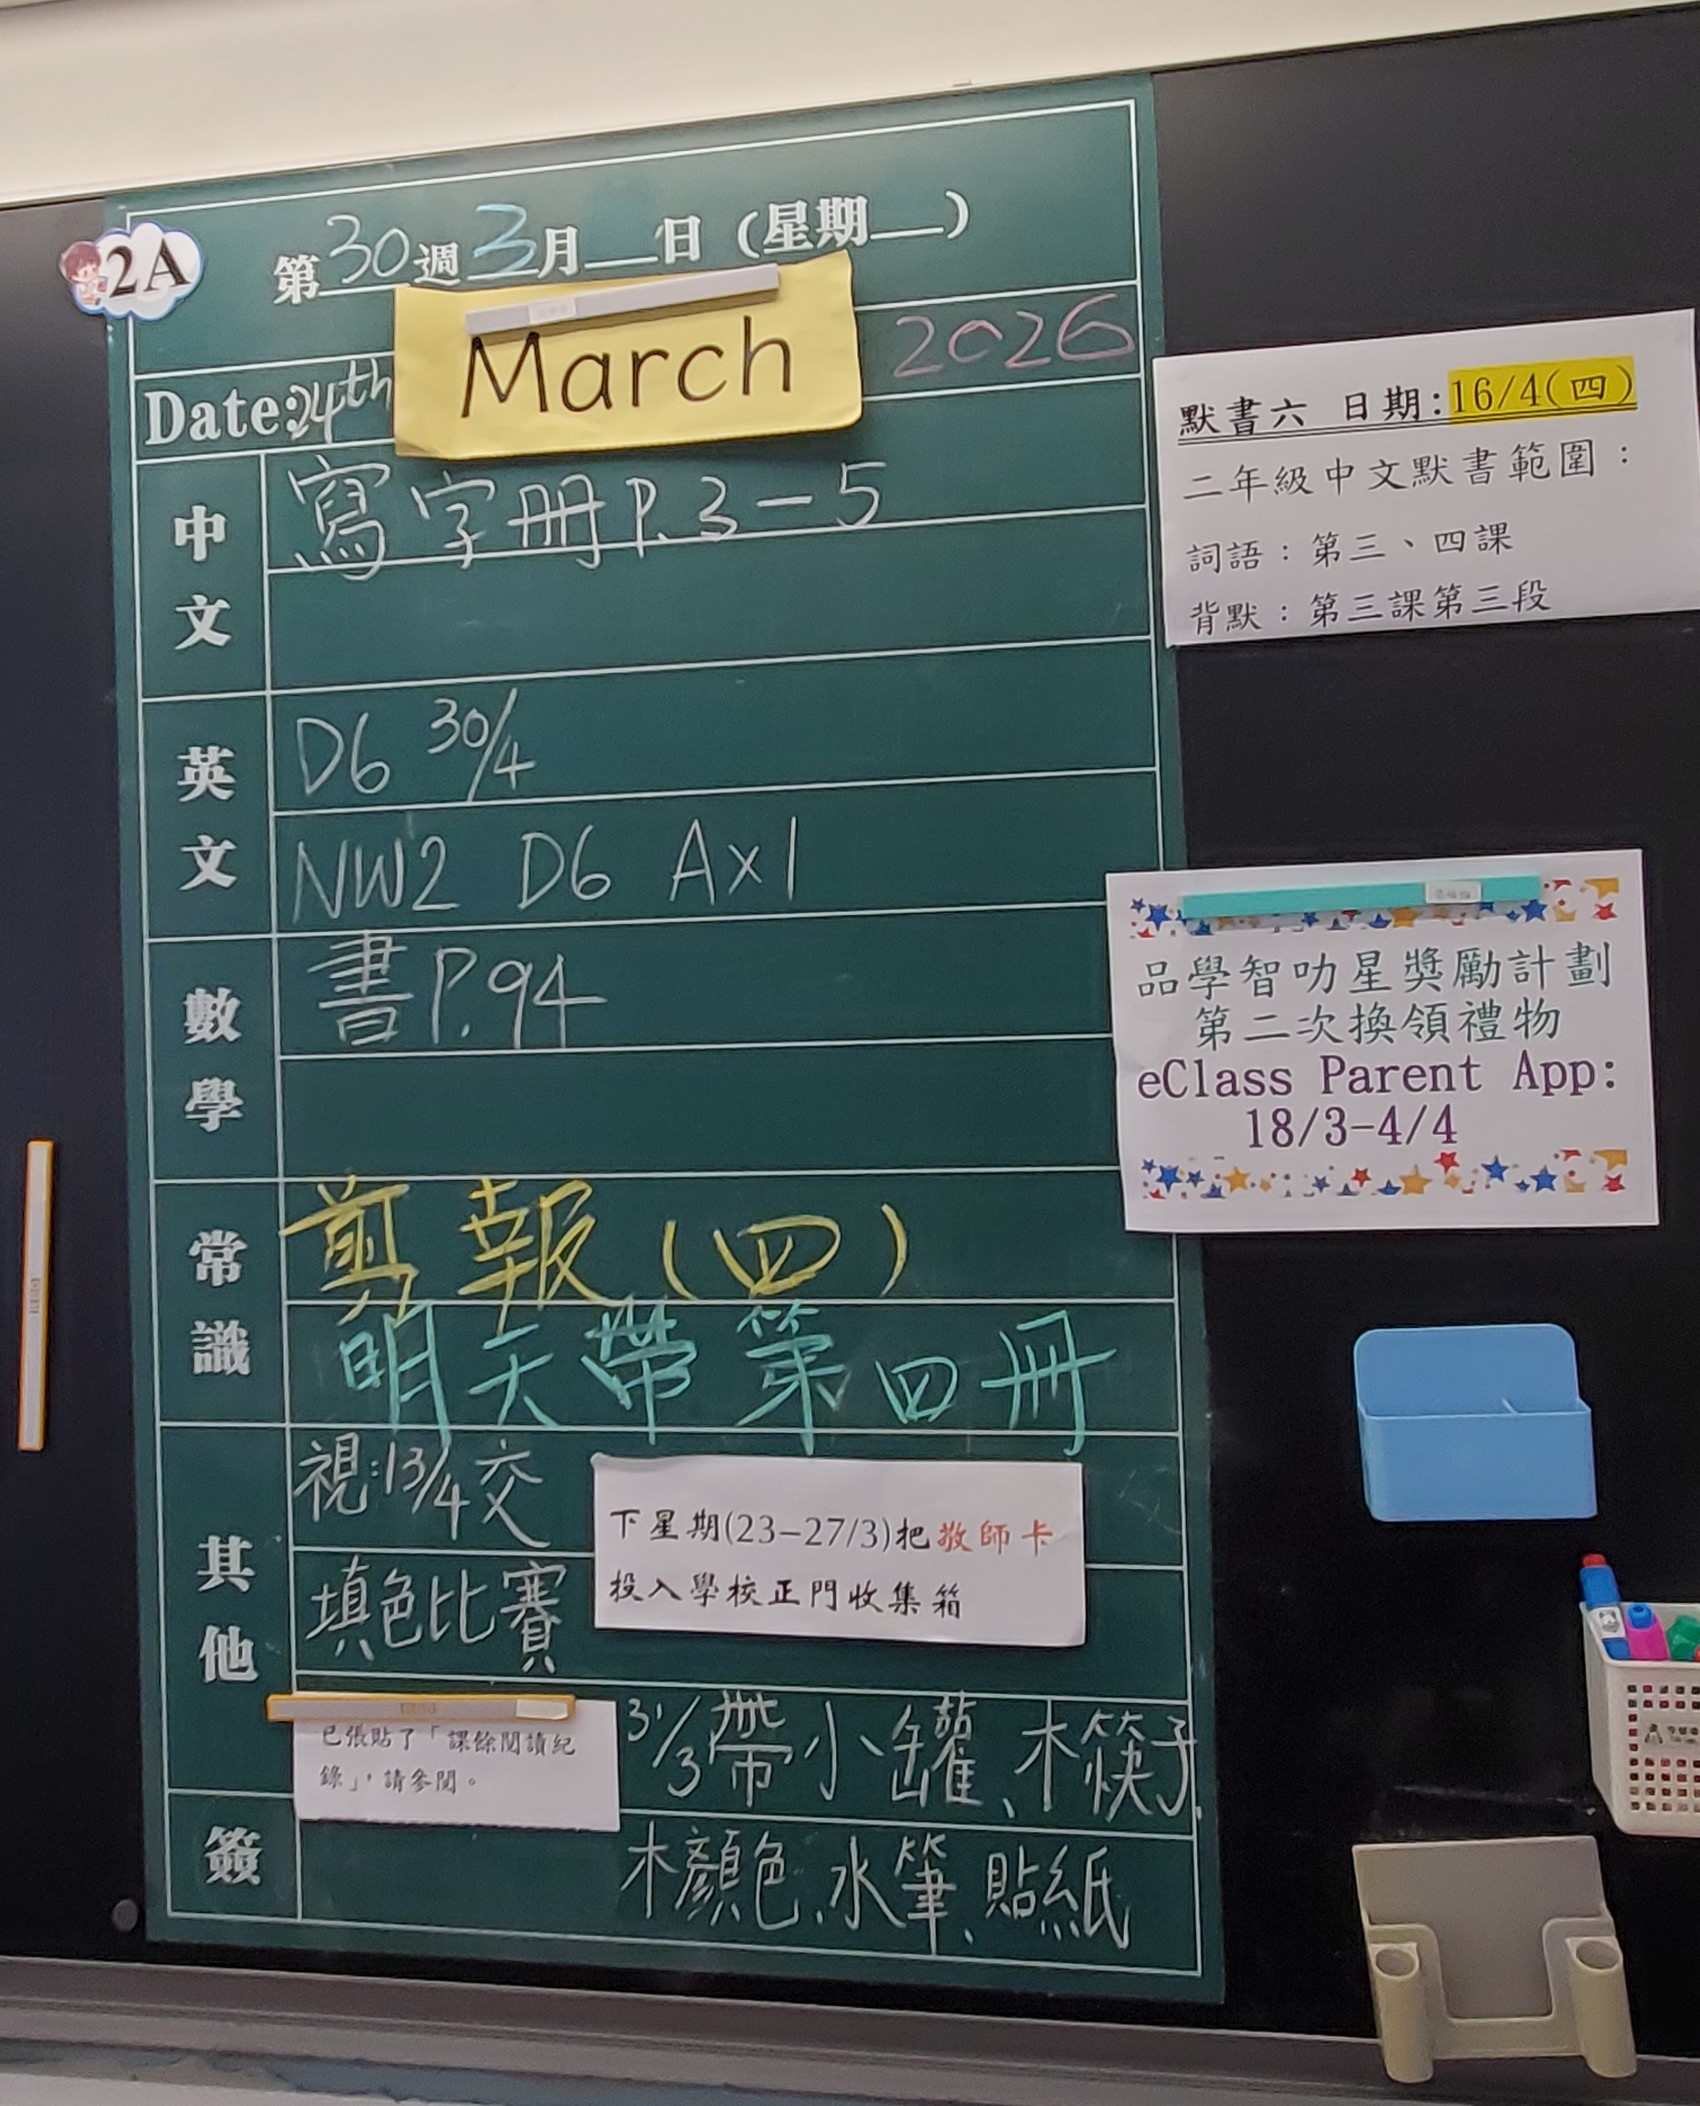 2A
第30週3月__日（星期__）
Date:24th March 2026
中文
寫字冊P.3-5
英文
D6 30/4
NW2 D6 A×1
數學
書P.94
常識
剪報(四)
明天帶第四冊
其他
視:13/4交
填色比賽
下星期(23-27/3)把敬師卡
投入學校正門收集箱
已張貼了「課餘閱讀紀
錄」，請參閱。
31/3帶小罐、木筷子、
木顏色、水筆、貼紙
簽
默書六 日期:16/4(四)
二年級中文默書範圍：
詞語：第三、四課
背默：第三課第三段
品學智叻星獎勵計劃
第二次換領禮物
eClass Parent App:
18/3-4/4